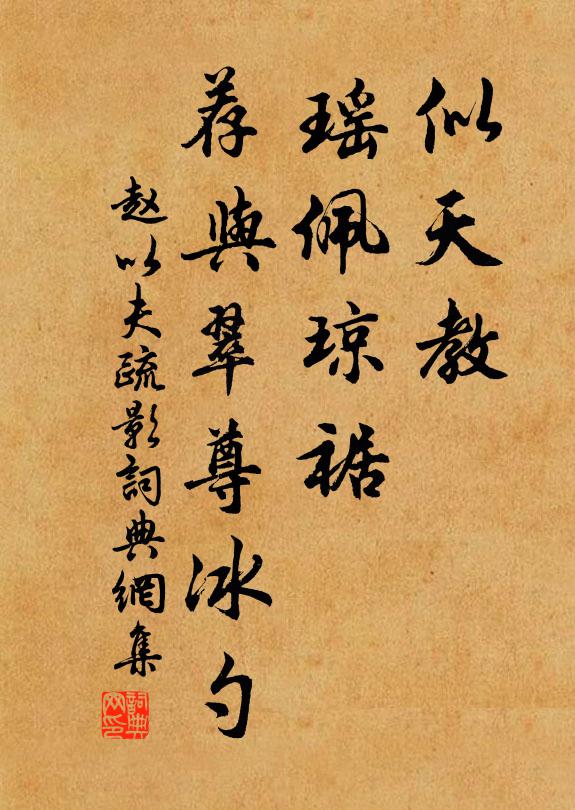 似天教
瑶佩琼裾
荐與翠尊冰勺
赵以夫疏影詞典網集
詞典网印